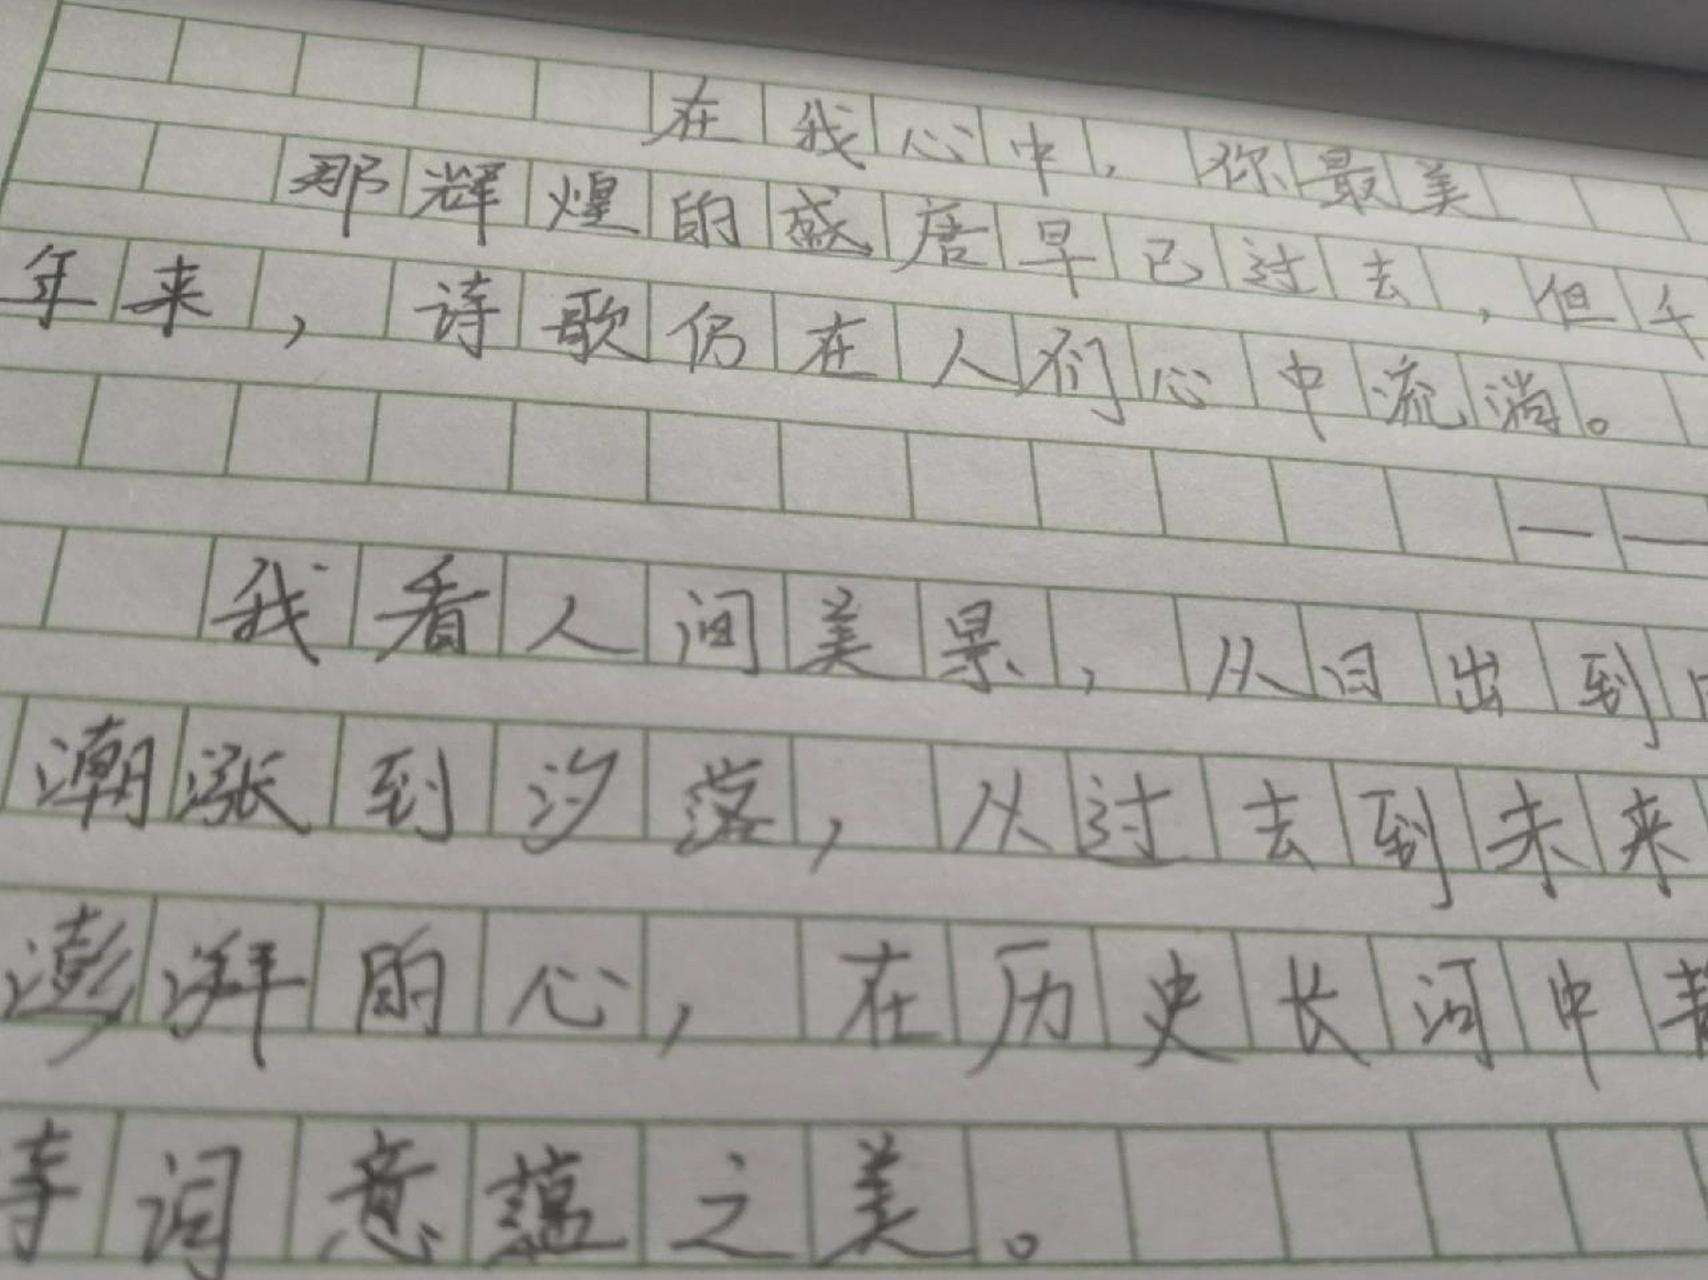 在我心中，你最美
那辉煌的盛唐早已过去，但千
年来，诗歌仍在人们心中流淌。
——
我看人间美景，从日出到
潮涨到汐落，从过去到未来
澎湃的心，在历史长河中
诗词意蕴之美。